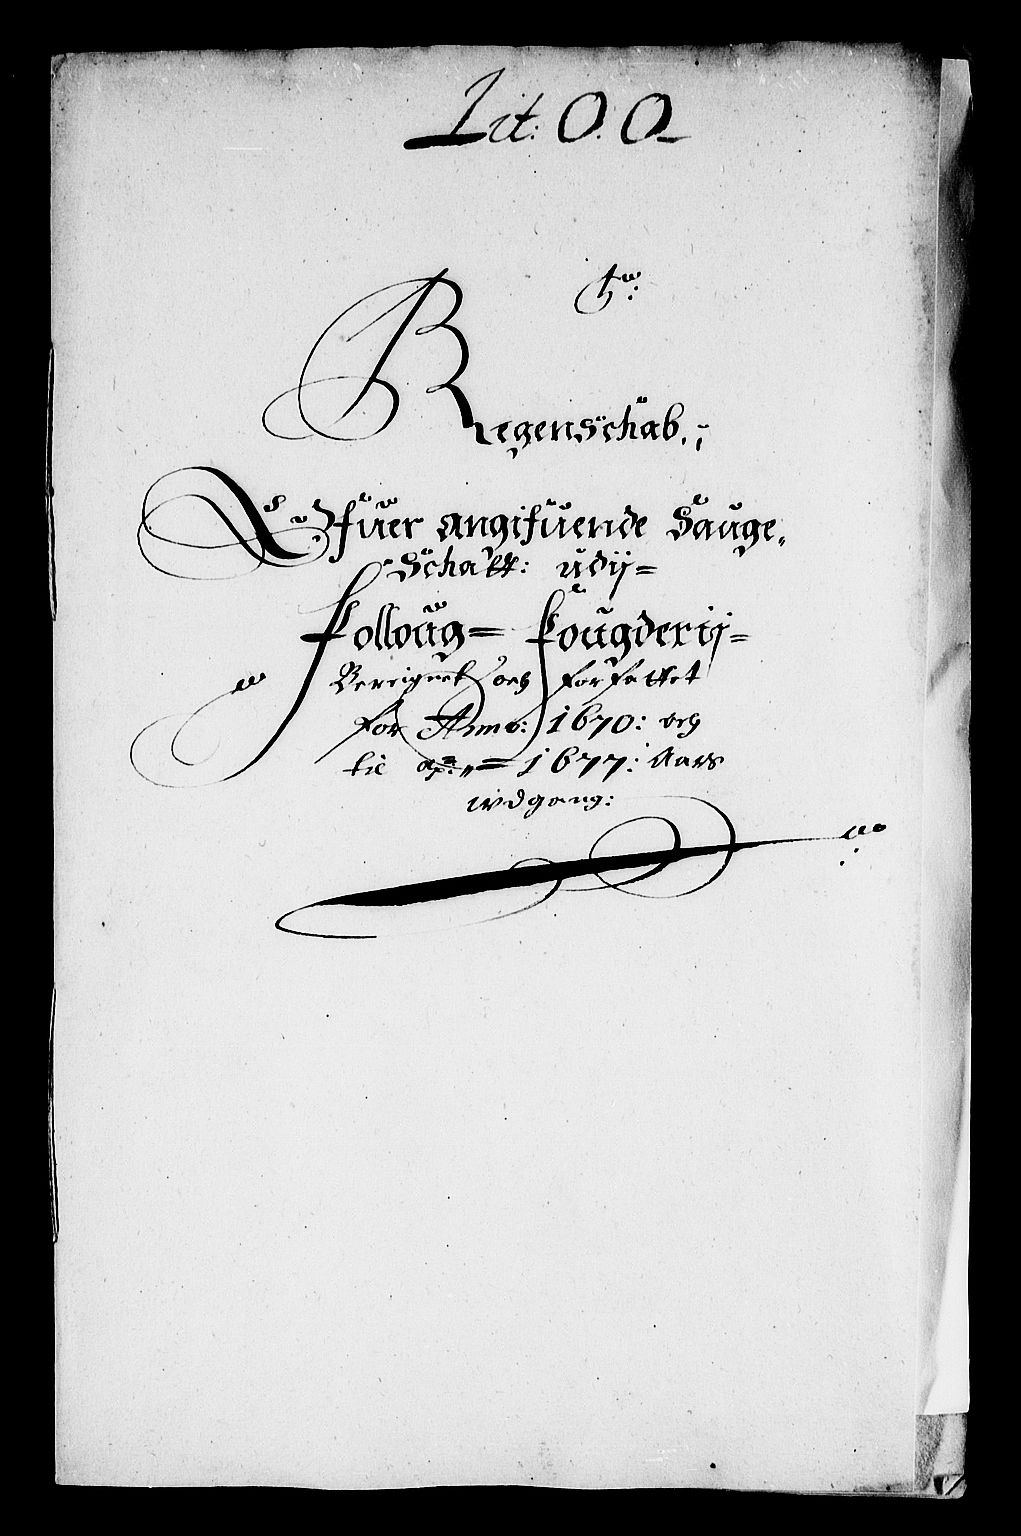 Lit: O.O
Regenschab,
Offuer angifuende Sauge-
Schatt: udij=
Folloug= Fougderij=
Bereignet och forfattet
for Anno: 1670: och
til = 1677: Aars
udgang: